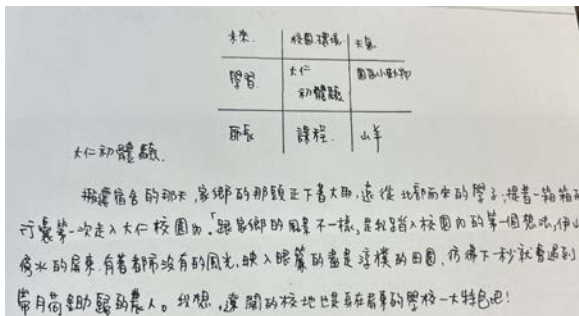 未來 校園環境 天氣
學習 大仁初體驗 園區小動物
師長 課程 山羊
大仁初體驗
搬遷宿舍的那天,家鄉的那頭正下著大雨,遠從北部而來的學子,提著一箱箱
行囊第一次走入大仁校園內。「跟家鄉的風景不一樣」是我踏入校園內的第一個想法,伊山
傍水的屏東,有著都市沒有的風光,映入眼簾的盡是淳樸的田園,彷彿下一秒就會遇到
帶月荷鋤歸的農人。我想,遼闊的校地也是在屏東的學校一大特色吧!